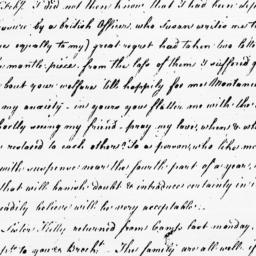 I did not then know that I had been dep
by a british Officer, who Susan writes me t
equally to my) great regret had taken two lette
mantle-piece. from the loss of them I suffered g
but your welfare 'till happily for me Montana
my anxiety - in yours you flatter me with the
seeing my friend - pray my love, when & wh
restored to each other? To a person, who like me
with suspence near the fourth part of a year,
that will banish doubt & introduce certainty in i
readily believe will be very acceptable.
Sister Kitty returned from Camp last monday.
to you & Brockt. - The family are all well. if